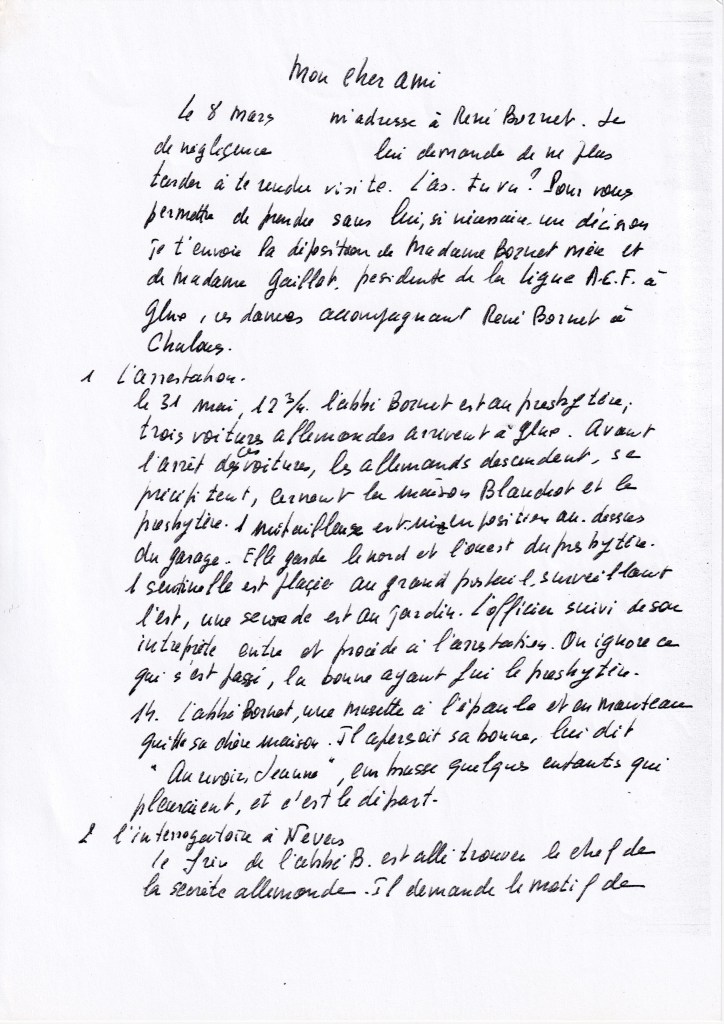 Mon cher ami
Le 8 Mars m'adresse à René Bornet. Je
de négligence lui demande de ne plus
tarder à te rendre visite. L'as-tu vu ? Pour vous
permettre de prendre sans lui, si nécessaire un décision
je t'envoie la déposition de Madame Bornet mère et
de Madame Gaillot, présidente de la ligue A.C.F. à
Glux, ces dames accompagnant René Bornet à
Chalons.
1 L'arrestation.
le 31 mai, 12 3/4. l'abbé Bornet est au presbytère;
trois voitures allemandes arrivent à Glux. Avant
l'arrêt des voitures, les allemands descendent, se
précipitent, cernent la maison Blandot et le
presbytère. 1 mitrailleuse est en position au-dessus
du garage. Elle garde le nord et l'ouest du presbytère.
1 sentinelle est placée au grand surveillant
l'est, une seconde est au jardin. L'officier suivi de son
interprète entre et procède à l'arrestation. On ignore ce
qui s'est passé, la bonne ayant fui le presbytère.
1h. L'abbé Bornet, une musette à l'épaule et en manteau
quitte sa chère maison. Il aperçoit sa bonne, lui dit
" Au revoir, Jeanne", embrasse quelques enfants qui
pleuraient, et c'est le départ.
2 l'interrogatoire à Nevers
le frère de l'abbé B. est allé trouver le chef de
la secrète allemande. Il demande le motif de